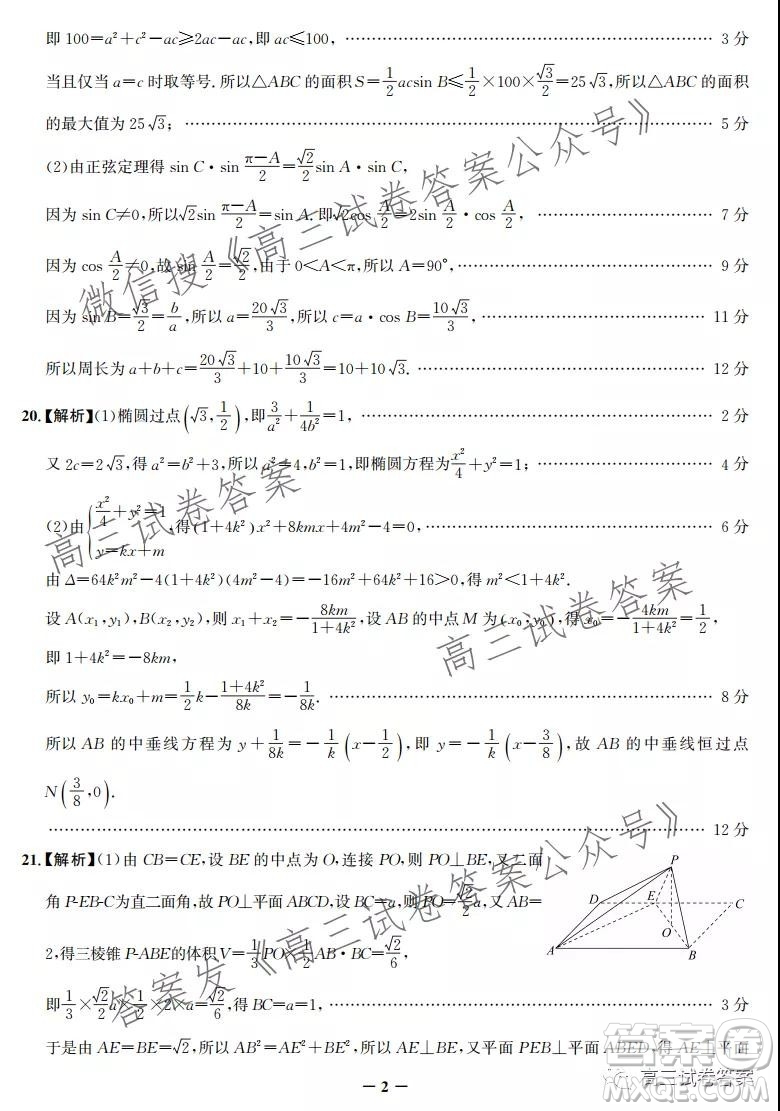 即 100=a²+c²-ac≥2ac-ac,即 ac≤100, …… 3 分
当且仅当 a=c 时取等号. 所以△ABC 的面积 S=\frac{1}{2}acsin B≤\frac{1}{2}×100×\frac{√3}{2}=25√3,所以△ABC 的面积
的最大值为 25√3; …… 5 分
(2)由正弦定理得 sin C·sin \frac{π-A}{2}=\frac{√2}{2}sin A·sin C,
因为 sin C≠0,所以√2sin \frac{π-A}{2}=sin A.即√2cos \frac{A}{2}=2sin \frac{A}{2}·cos \frac{A}{2}, …… 7 分
因为 cos \frac{A}{2}≠0,故 sin \frac{A}{2}=\frac{√2}{2},由于 0<A<π,所以 A=90°, …… 9 分
因为 sin B=\frac{√3}{2}=\frac{b}{a},所以 a=\frac{20√3}{3},所以 c=a·cos B=\frac{10√3}{3}, …… 11 分
所以周长为 a+b+c=\frac{20√3}{3}+10+\frac{10√3}{3}=10+10√3. …… 12 分
20.【解析】(1)椭圆过点(√3,\frac{1}{2}),即\frac{3}{a²}+\frac{1}{4b²}=1, …… 2 分
又 2c=2√3,得 a²=b²+3,所以 a²=4,b²=1,即椭圆方程为\frac{x²}{4}+y²=1; …… 4 分
(2)由{\frac{x²}{4}+y²=1
y=kx+m ,得(1+4k²)x²+8kmx+4m²-4=0, …… 6 分
由 Δ=64k²m²-4(1+4k²)(4m²-4)=-16m²+64k²+16>0,得 m²<1+4k².
设 A(x₁,y₁),B(x₂,y₂),则 x₁+x₂=-\frac{8km}{1+4k²},设 AB 的中点 M 为(x₀,y₀),得 x₀=-\frac{4km}{1+4k²}=\frac{1}{2},
即 1+4k²=-8km,
所以 y₀=kx₀+m=\frac{1}{2}k-\frac{1+4k²}{8k}=-\frac{1}{8k}. …… 8 分
所以 AB 的中垂线方程为 y+\frac{1}{8k}=-\frac{1}{k}(x-\frac{1}{2}),即 y=-\frac{1}{k}(x-\frac{3}{8}),故 AB 的中垂线恒过点
N(\frac{3}{8},0).
…… 12 分
21.【解析】(1)由 CB=CE,设 BE 的中点为 O,连接 PO,则 PO⊥BE,又二面
角 P-EB-C 为直二面角,故 PO⊥平面 ABCD,设 BC=a,则 PO=\frac{√2}{2}a,又 AB=
2,得三棱锥 P-ABE 的体积 V=\frac{1}{3}PO×\frac{1}{2}AB·BC=\frac{√2}{6},
即\frac{1}{3}×\frac{√2}{2}a×\frac{1}{2}×2×a=\frac{√2}{6},得 BC=a=1, …… 3 分
于是由 AE=BE=√2,所以 AB²=AE²+BE²,所以 AE⊥BE,又平面 PEB⊥平面 ABED,得 AE⊥平面
P
D
E
C
O
A
B
— 2 —
微信搜《高三试卷答案公众号》
高三试卷答案
高三试卷答案
答案发《高三试卷答案公众号》
答案圈
高三试卷答案
MXQE.COM